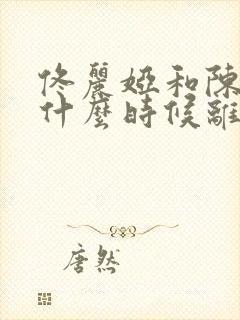 佟麗婭和陳
什麼時候離
唐然